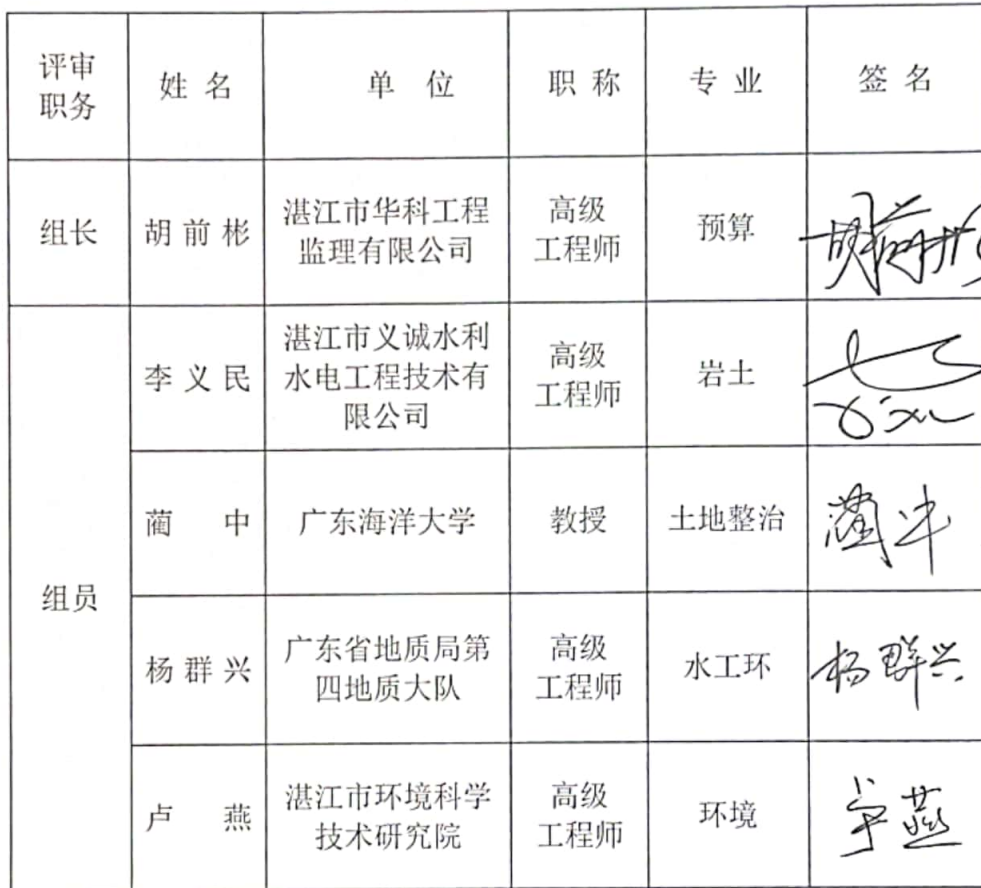 评审
职务
姓 名
单 位
职 称
专 业
签 名
组长
胡 前 彬
湛江市华科工程
监理有限公司
高级
工程师
预算
胡前彬
组员
李 义 民
湛江市义诚水利
水电工程技术有
限公司
高级
工程师
岩土
蔺 中
广东海洋大学
教授
土地整治
蔺中
杨 群 兴
广东省地质局第
四地质大队
高级
工程师
水工环
杨群兴
卢 燕
湛江市环境科学
技术研究院
高级
工程师
环境
卢燕